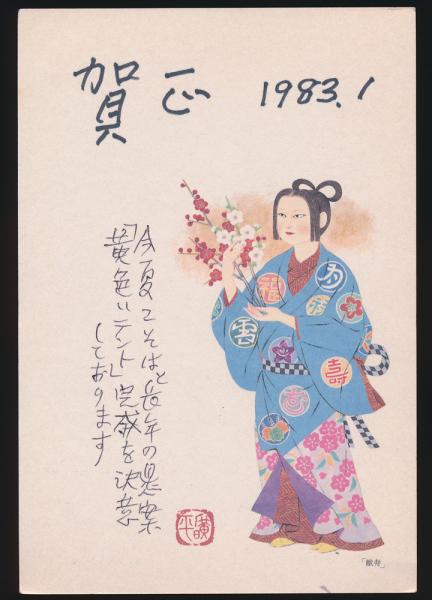 賀正
1983.1
今夏こそはと長年の懸案
「黄色いテント」完成を決意
しております
廣平
「献寿」
壽
雲